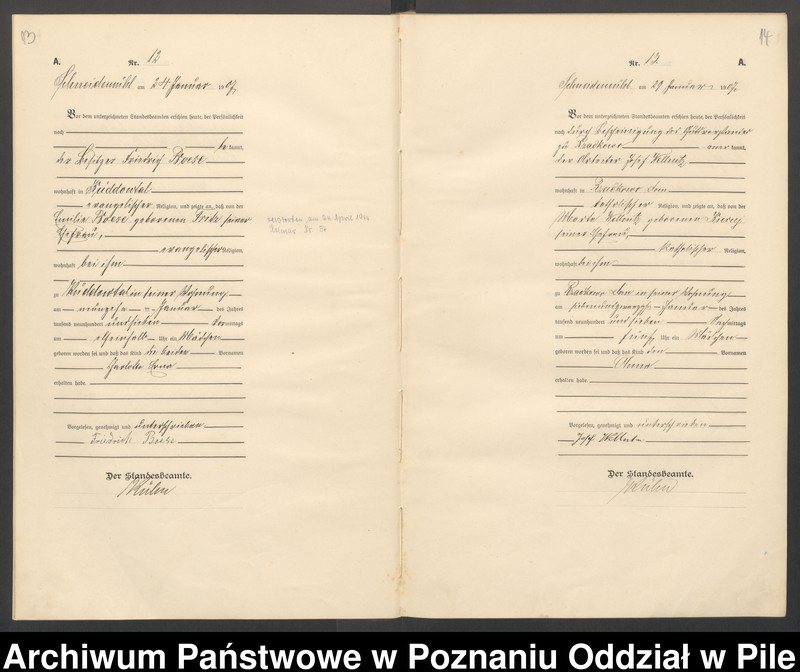 13
A.
Nr. 12
Schneidemühl am 24 Januar 1907
Vor dem unterzeichneten Standesbeamten erschien heute, der Persönlichkeit
nach
be kannt,
der Besitzer Friedrich Boese
wohnhaft in Küddowtal
evangelischer Religion, und zeigte an, daß von der
Emilie Boese geborenen seiner
Ehefrau,
evangelischer Religion,
wohnhaft bei ihm
zu Küddowtal in seiner Wohnung
am Januar des Jahres
tausend neunhundert und sieben Vormittags
um Uhr ein Mädchen
geboren worden sei und daß das Kind die beiden Vornamen
Charlotte Erna
erhalten habe.
Vorgelesen, genehmigt und unterschrieben
Friedrich Boese
Der Standesbeamte.
14
Nr. 13.
A.
Schneidemühl am 29. Januar 1907
Vor dem unterzeichneten Standesbeamten erschien heute, der Persönlichkeit
nach durch Bescheinigung des
zu aner kannt,
der Arbeiter Josef
wohnhaft in
katholischer Religion, und zeigte an, daß von der
geborenen
seiner Ehefrau,
katholischer Religion,
wohnhaft bei ihm
zu in seiner Wohnung
am siebenundzwanzigsten Januar des Jahres
tausend neunhundert und sieben Nachmittags
um fünf Uhr ein Mädchen
geboren worden sei und daß das Kind den Vornamen
Anna
erhalten habe.
Vorgelesen, genehmigt und unterschrieben
Josef
Der Standesbeamte.
Archiwum Państwowe w Poznaniu Oddział w Pile